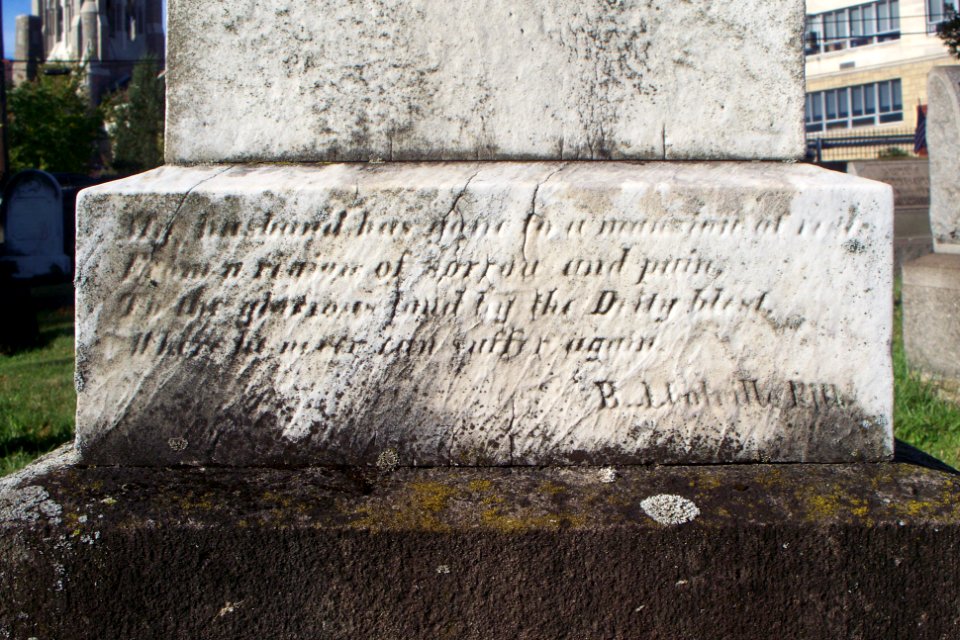 My husband has gone to a mansion of rest,
From a region of sorrow and pain,
To the glorious land by the Deity blest,
Where he never can suffer again.
B.